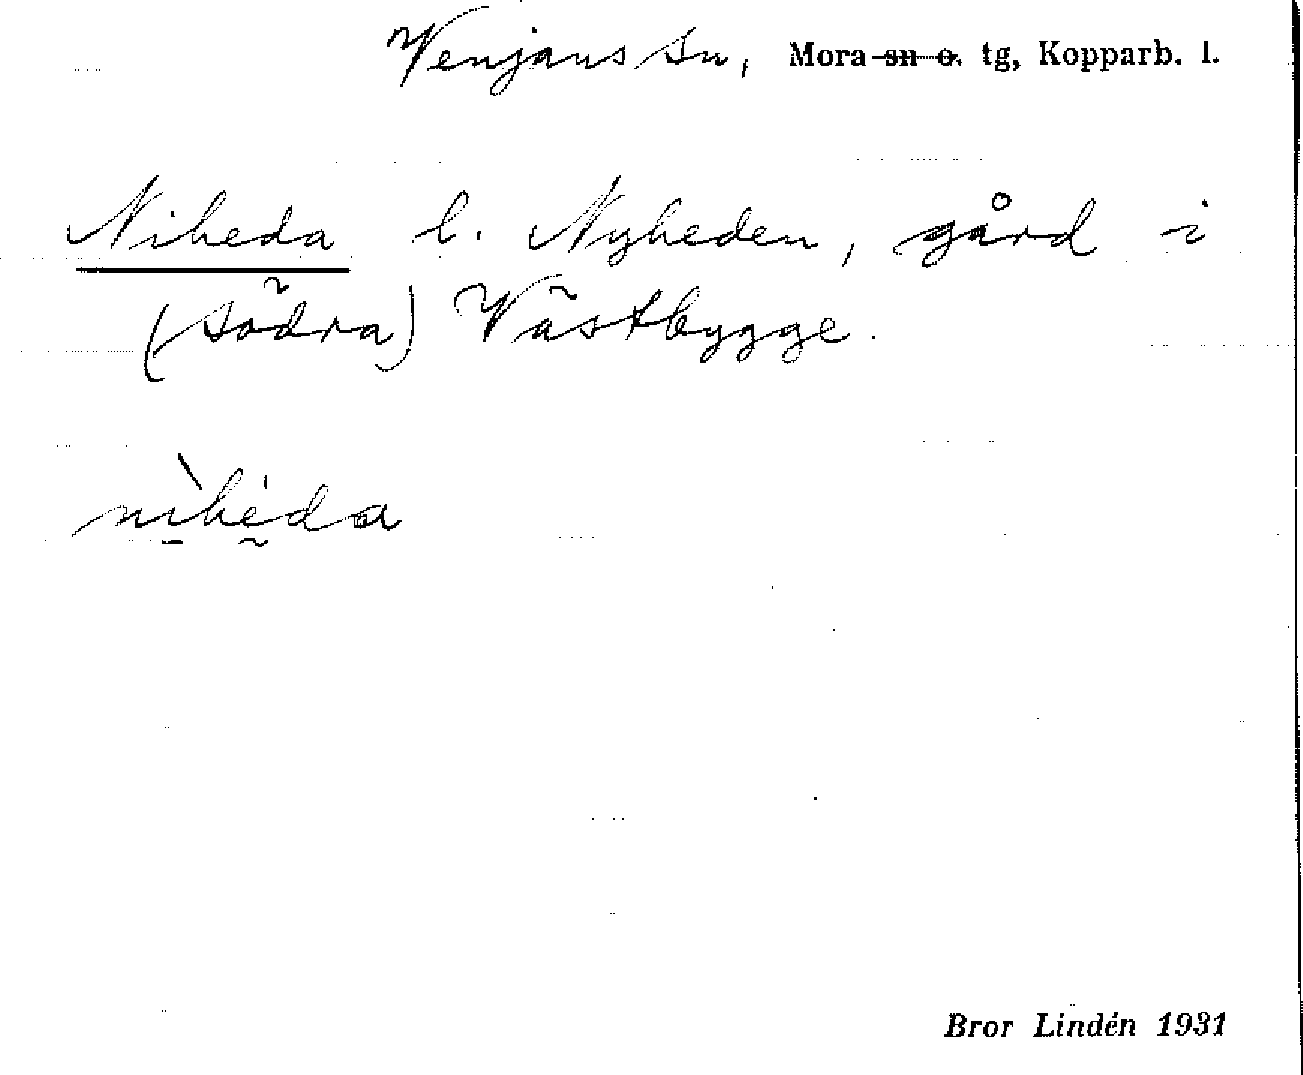 Venjans sn, Mora sn o. tg, Kopparb. l.
Niheda l. Nyheden, gård i
(södra) Västbygge.
nìhèda
Bror Lindén 1931